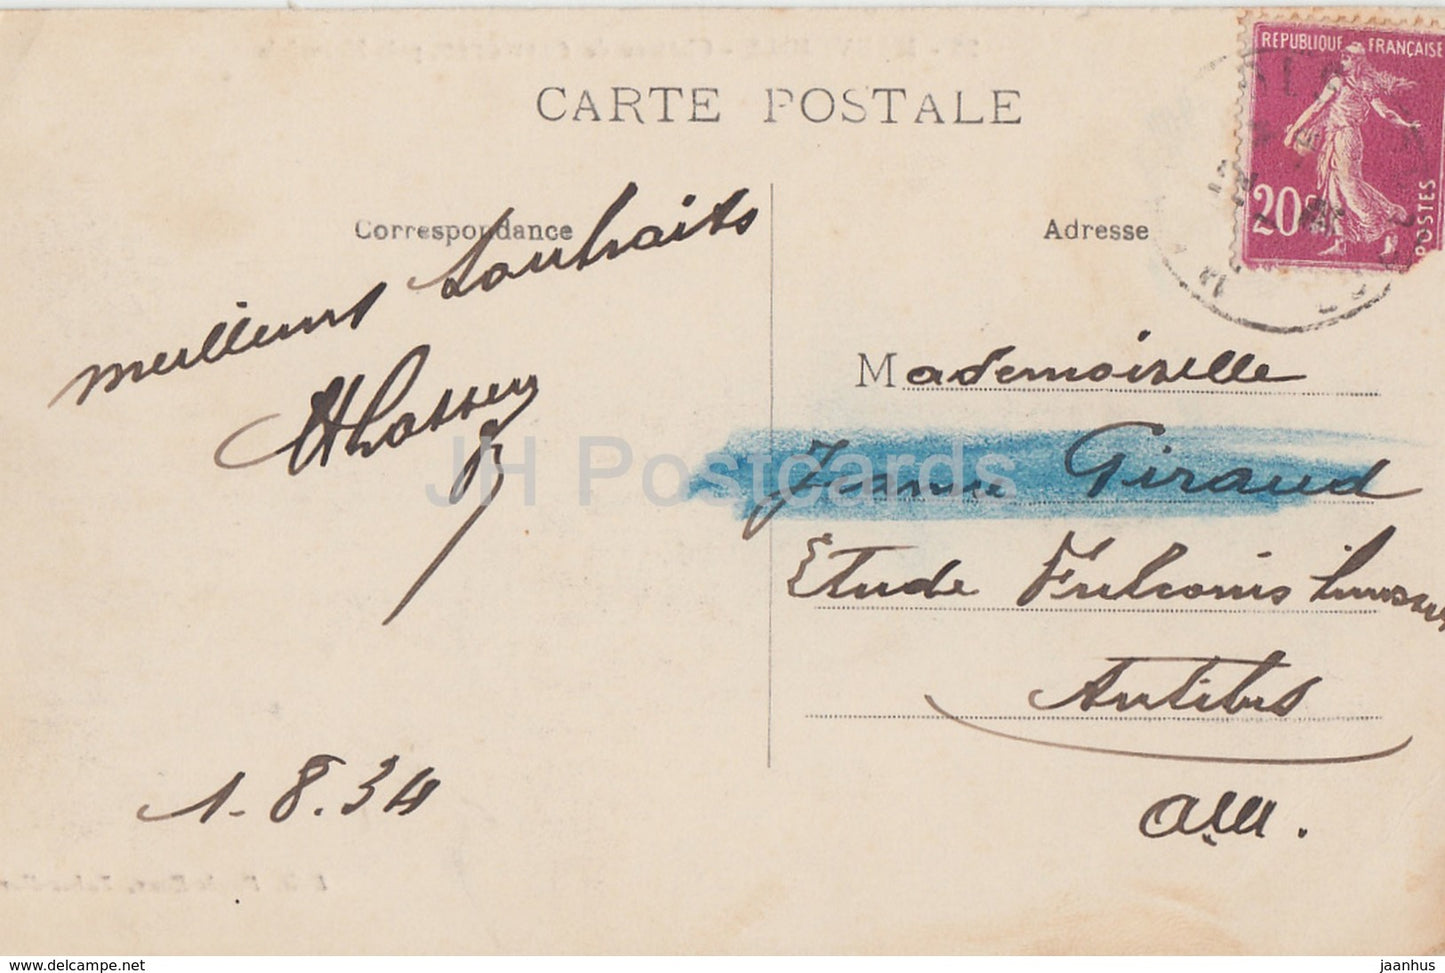 CARTE POSTALE
Correspondance
Adresse
RÉPUBLIQUE FRANÇAISE
20c
POSTES
meilleurs souhaits
Mademoiselle
Jeanne Giraud
Etude Fulconis
Antibes
A.M.
1-8.34
JH Postcards
www.delcampe.net
jaanhus